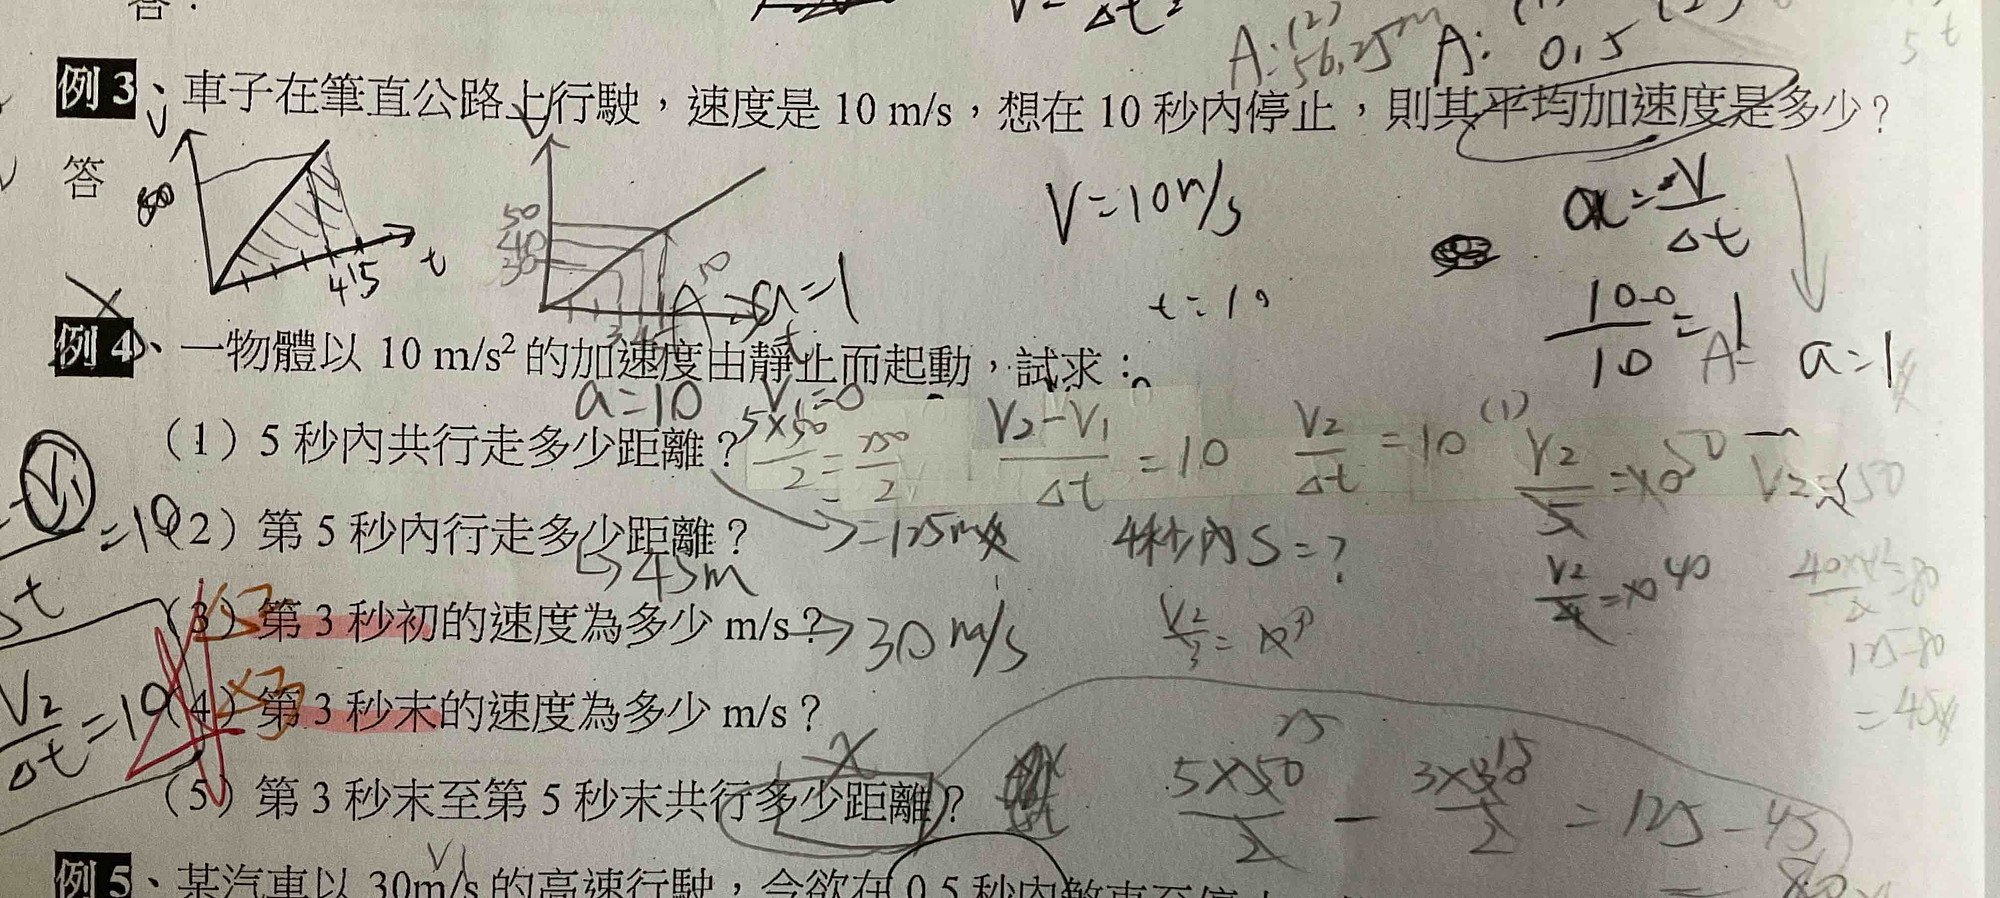 答：
V= Δt²
A: (2) 56.25m A: 0.5
例3、車子在筆直公路上行駛，速度是 10 m/s，想在 10 秒內停止，則其平均加速度是多少？
答
V
80
4 5 t
V
50
40
30
A a=1
t
V=10m/s
t=10
a=V/Δt
10-0/10=1
A= a=1
例4、一物體以 10 m/s² 的加速度由靜止而起動，試求：
a=10 V₁=0
（1）5 秒內共行走多少距離？
5×50/2=250/2
=125m
V₂-V₁/Δt=10
V₂/Δt=10
(1) V₂/5=10 50
V₂=50
-V₁
=10
（2）第 5 秒內行走多少距離？
45m
4秒內S=?
V₂/4=10 40
40×4/2=80
125-80
=45
（3）第 3 秒初的速度為多少 m/s？
30 m/s
V₂/3=10
（4）第 3 秒末的速度為多少 m/s？
V₂/Δt=10
（5）第 3 秒末至第 5 秒末共行多少距離？
X
5×50/2 - 3×30/2 = 125-45
25 15
= 80
V₁
例5、某汽車以 30m/s 的高速行駛，今欲在 0.5 秒內煞車至停止